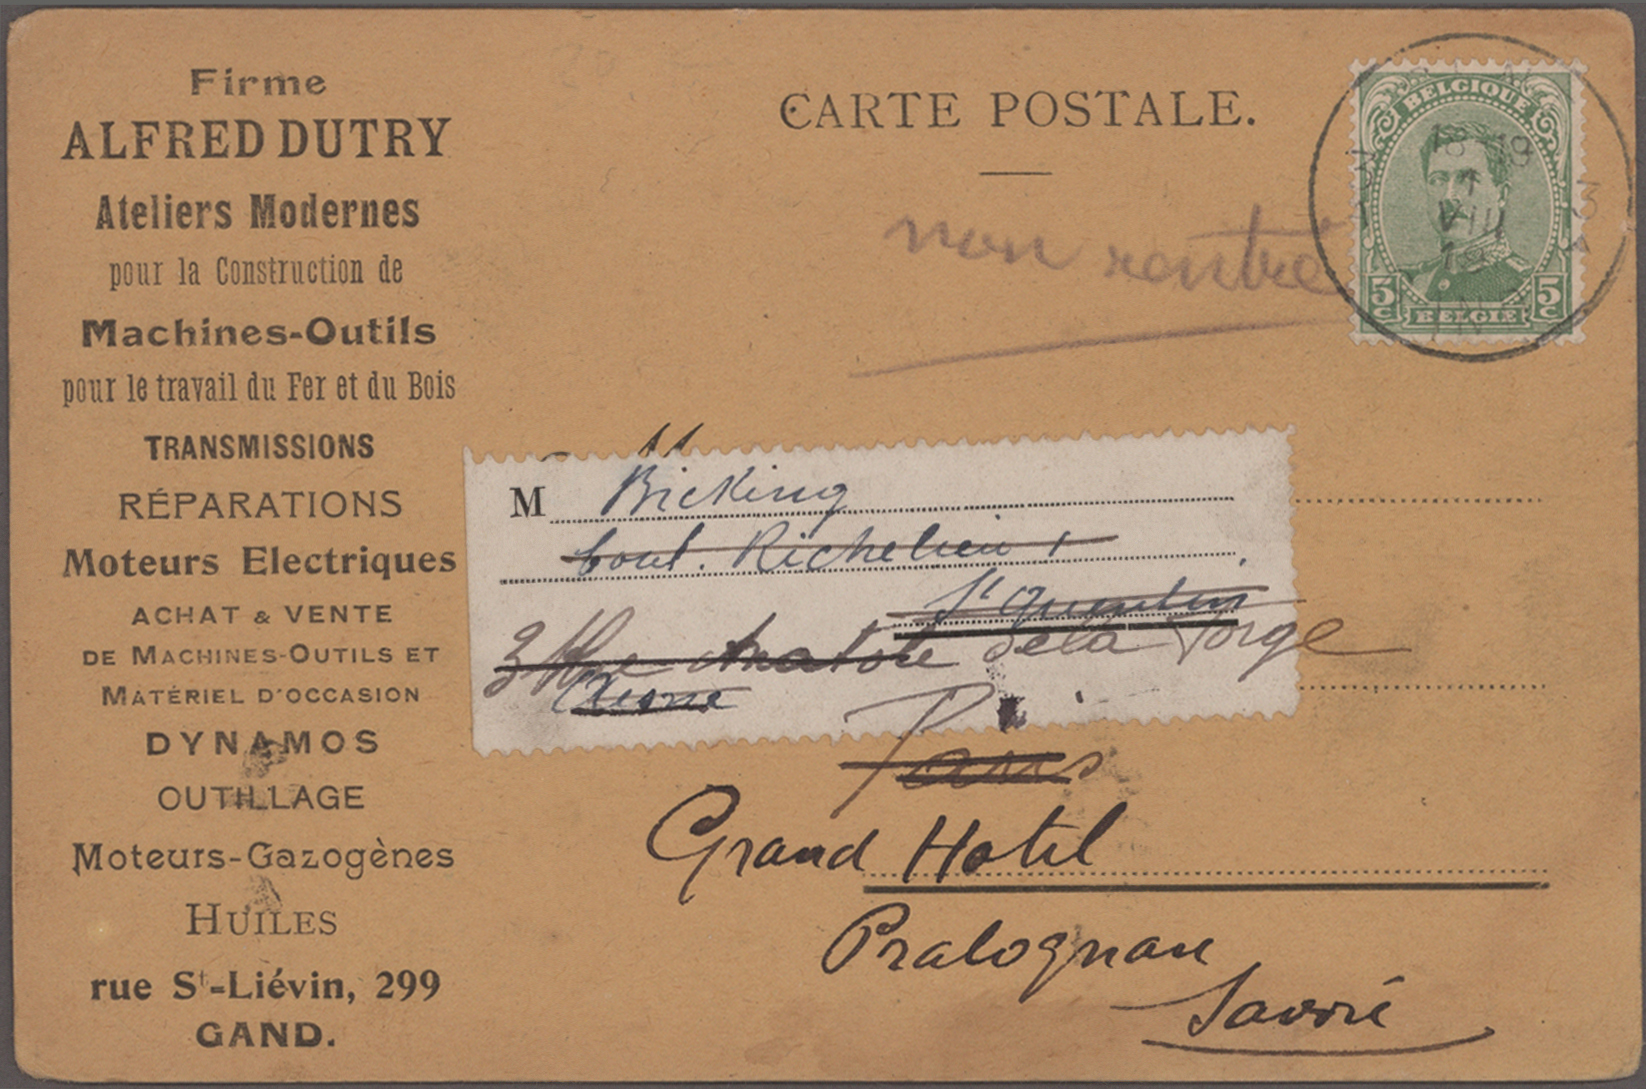 Firme
ALFRED DUTRY
Ateliers Modernes
pour la Construction de
Machines-Outils
pour le travail du Fer et du Bois
TRANSMISSIONS
RÉPARATIONS
Moteurs Electriques
ACHAT & VENTE
DE MACHINES-OUTILS ET
MATÉRIEL D'OCCASION
DYNAMOS
OUTILLAGE
Moteurs-Gazogènes
HUILES
rue St-Liévin, 299
GAND.
CARTE POSTALE.
non rentré
BELGIQUE
5c 5c
BELGIË
18-19
1
VIII
19
M Bicking
boul. Richelieu 1
St Quentin
3 Rue Anatole de la Forge
Aisne
Paris
Grand Hotel
Pralognan
Savoie